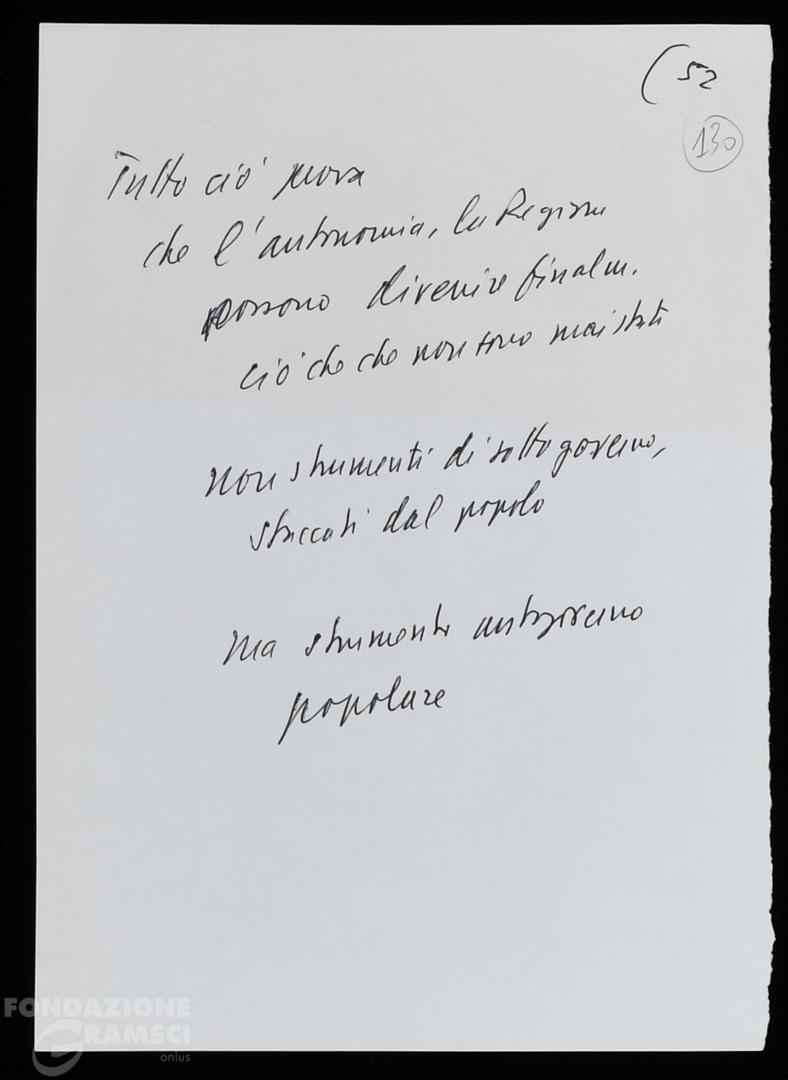 (52
130
Tutto ciò prova
che l'autonomia, la Regione
possono divenire finalm.
ciò che che non sono mai stati
non strumenti di sottogoverno,
staccati dal popolo
ma strumenti autogoverno
popolare
FONDAZIONE
GRAMSCI
onlus